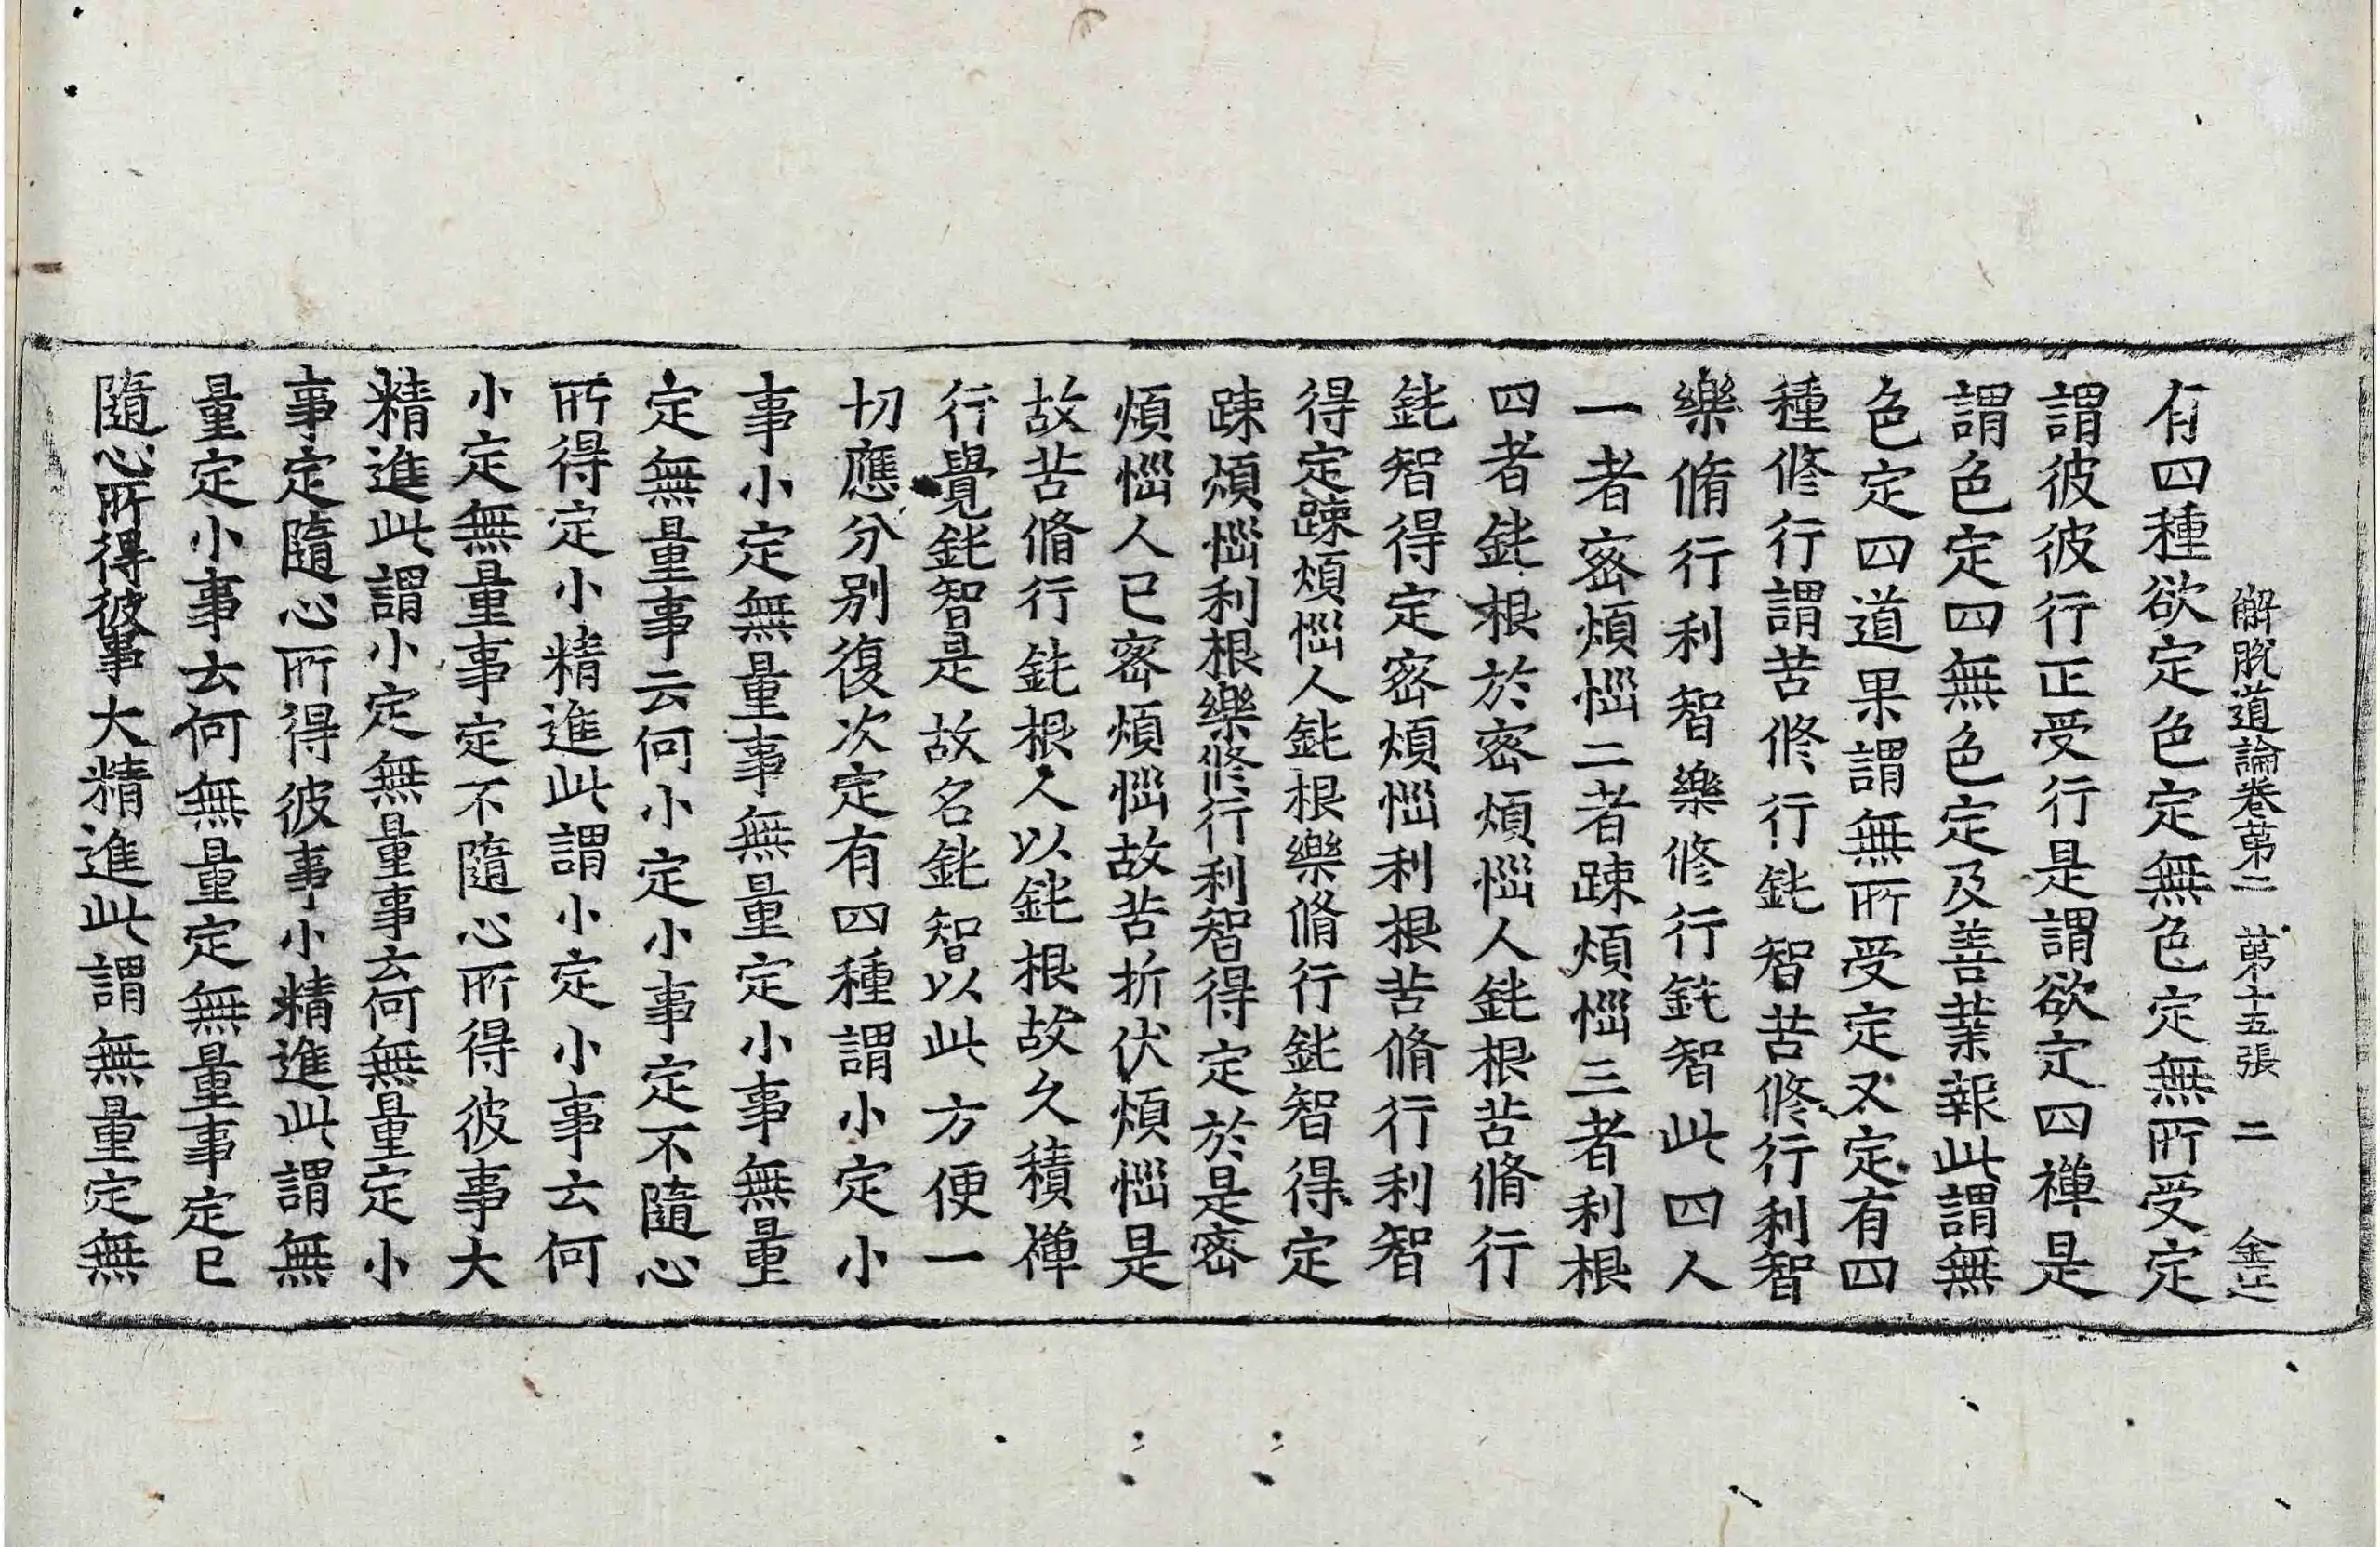 解脫道論卷第二 第十五張 二 金正
有四種欲定色定無色定無所受定
謂彼彼行正受行是謂欲定四禪是
謂色定四無色定及善業報此謂無
色定四道果謂無所受定又定有四
種修行謂苦修行鈍智苦修行利智
樂脩行利智樂修行鈍智此四人
一者密煩惱二者踈煩惱三者利根
四者鈍根於密煩惱人鈍根苦脩行
鈍智得定密煩惱利根苦脩行利智
得定踈煩惱人鈍根樂脩行鈍智得定
踈煩惱利根樂修行利智得定於是密
煩惱人已密煩惱故苦折伏煩惱是
故苦脩行鈍根人以鈍根故久積禪
行覺鈍智是故名鈍智以此方便一
切應分別復次定有四種謂小定小
事小定無量事無量定小事無量
定無量事云何小定小事定不隨心
所得定小精進此謂小定小事云何
小定無量事定不隨心所得彼事大
精進此謂小定無量事云何無量定小
事定隨心所得彼事小精進此謂無
量定小事云何無量定無量事定已
隨心所得彼事大精進此謂無量定無